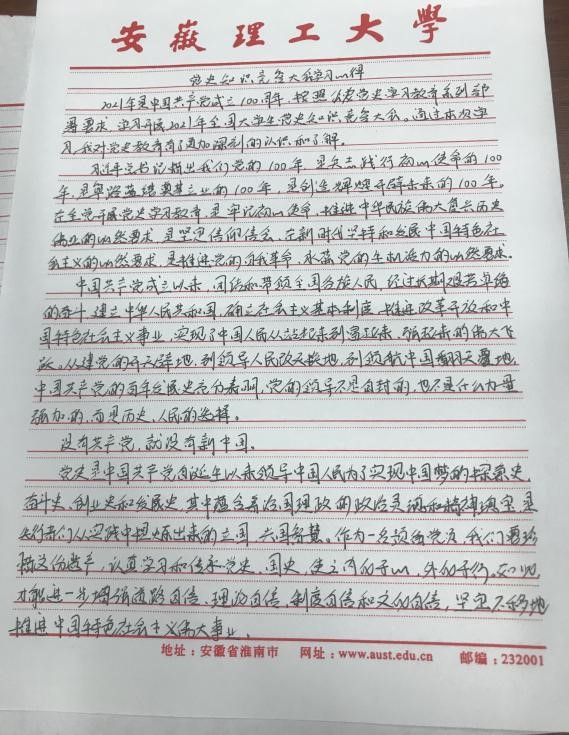 安徽理工大学
党史知识竞答大赛学习心得
2021年是中国共产党成立100周年,按照党史学习教育系列部
署要求,学习开展2021年全国大学生党史知识竞答大会。通过本次学
习,我对党史教育有了更加深刻的认识和了解。
习近平总书记指出我们党的100年,是矢志践行初心使命的100
年,是筚路蓝缕奠基立业的100年,是创造辉煌开辟未来的100年。
在全党开展党史学习教育,是牢记初心使命,推进中华民族伟大复兴历史
伟业的必然要求,是坚定信仰信念,在新时代坚持和发展中国特色社
会主义的必然要求,是推进党的自我革命,永葆党的生机活力的必然要求。
中国共产党成立以来,团结和带领全国各族人民,经过长期艰苦卓绝
的奋斗,建立中华人民共和国,确立社会主义基本制度,推进改革开放和中
国特色社会主义事业,实现了中国人民从站起来到富起来、强起来的伟大飞
跃。从建党的开天辟地,到领导人民改天换地,到领航中国翻天覆地,
中国共产党的百年发展史充分表明,党的领导不是自封的,也不是什么力量
强加的,而是历史、人民的选择。
没有共产党,就没有新中国。
党史是中国共产党自诞生以来领导中国人民为了实现中国梦的探索史、
奋斗史、创业史和发展史,其中蕴含着治国理政的政治灵魂和精神瑰宝,是
先行者们从实践中提炼出来的立国、兴国智慧。作为一名预备党员,我们要珍
惜这份遗产,认真学习和传承党史、国史,使之内化于心,外化于行。如此,
才能进一步增强道路自信、理论自信、制度自信和文化自信,坚定不移地
推进中国特色社会主义伟大事业。
地址:安徽省淮南市 网址:www.aust.edu.cn 邮编:232001